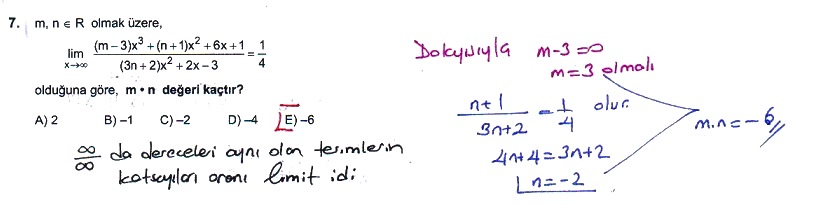 7. m, n ∈ R olmak üzere,
lim x→∞ ((m−3)x³ + (n+1)x² + 6x + 1) / ((3n+2)x² + 2x − 3) = 1/4
olduğuna göre, m • n değeri kaçtır?
A) 2 B) −1 C) −2 D) −4 E) −6
∞/∞ da dereceleri aynı olan terimlerin
katsayıları oranı limit idi
Dolayısıyla m-3=0
m=3 olmalı
(n+1)/(3n+2) = 1/4 olur.
4n+4=3n+2
n=-2
m.n=-6//